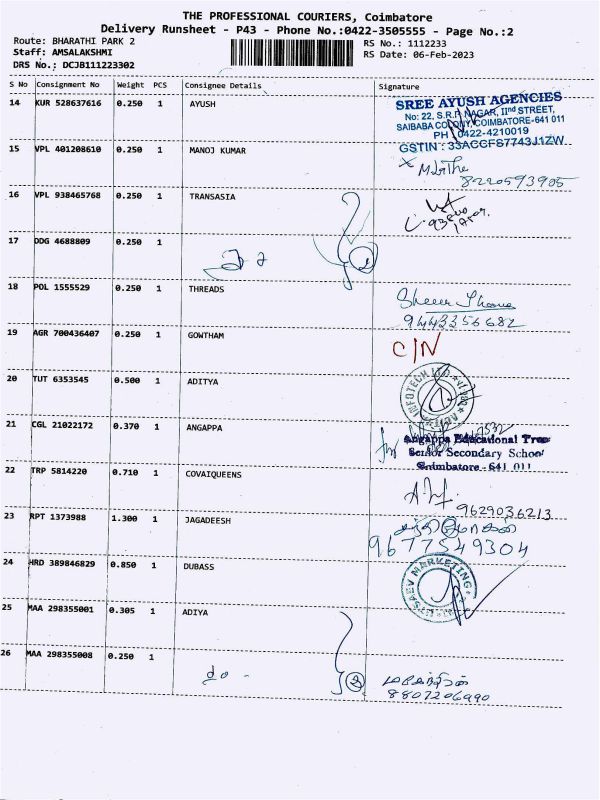 THE PROFESSIONAL COURIERS, Coimbatore
Delivery Runsheet - P43 - Phone No.:0422-3505555 - Page No.:2
Route: BHARATHI PARK 2 RS No.: 1112233
Staff: AMSALAKSHMI RS Date: 06-Feb-2023
DRS No.: DCJB111223302
S No Consignment No Weight PCS Consignee Details Signature
14 KUR 528637616 0.250 1 AYUSH
SREE AYUSH AGENCIES
No: 22, S.R.P. NAGAR, IInd STREET,
SAIBABA COLONY, COIMBATORE-641 011
PH : 0422-4210019
GSTIN : 33ACCFS7743J1ZW
15 VPL 401208610 0.250 1 MANOJ KUMAR
8220593905
16 VPL 938465768 0.250 1 TRANSASIA
17 DDG 4688809 0.250 1
18 POL 1555529 0.250 1 THREADS
9443356682
19 AGR 700436407 0.250 1 GOWTHAM C/N
20 TUT 6353545 0.500 1 ADITYA
INFOTECH LTD
21 CGL 21022172 0.370 1 ANGAPPA
Angappa Educational Trust
Senior Secondary School
Coimbatore - 641 011
22 TRP 5814220 0.710 1 COVAIQUEENS
9629036213
23 RPT 1373988 1.300 1 JAGADEESH
9677549304
24 HRD 389846829 0.850 1 DUBASS
MARKETING
25 MAA 298355001 0.305 1 ADIYA
26 MAA 298355008 0.250 1
do - 2
8807206990